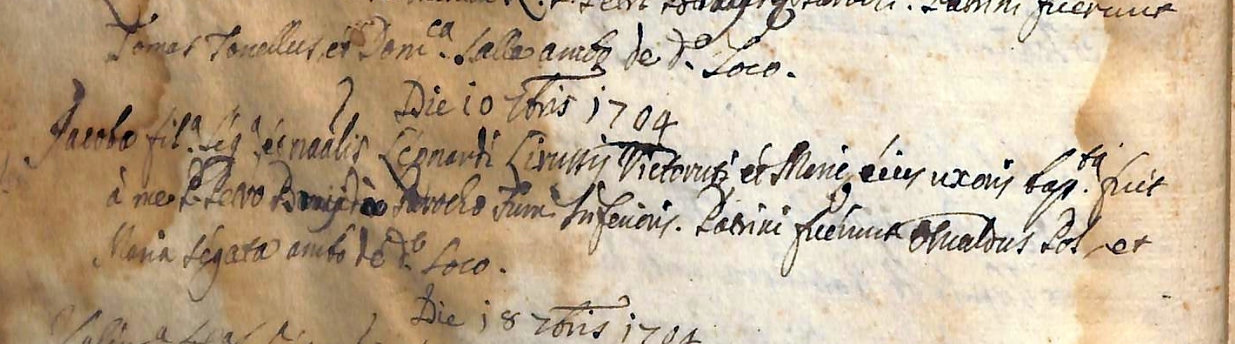 Patrini fuerunt
Tomas Tonellus, et Dom.ca Salla ambo de d.o Loco.
Die 10 7bris 1704
Jacoba fil.a leg.a et n'alis Leonardi Victorutij et Marie eius uxoris bap.ta fuit
à me P. Petro Parocho Inferioris. Patrini fuerunt Osualdus Pol et
Maria Segata ambo de d.o Loco.
Die 18 7bris 1704